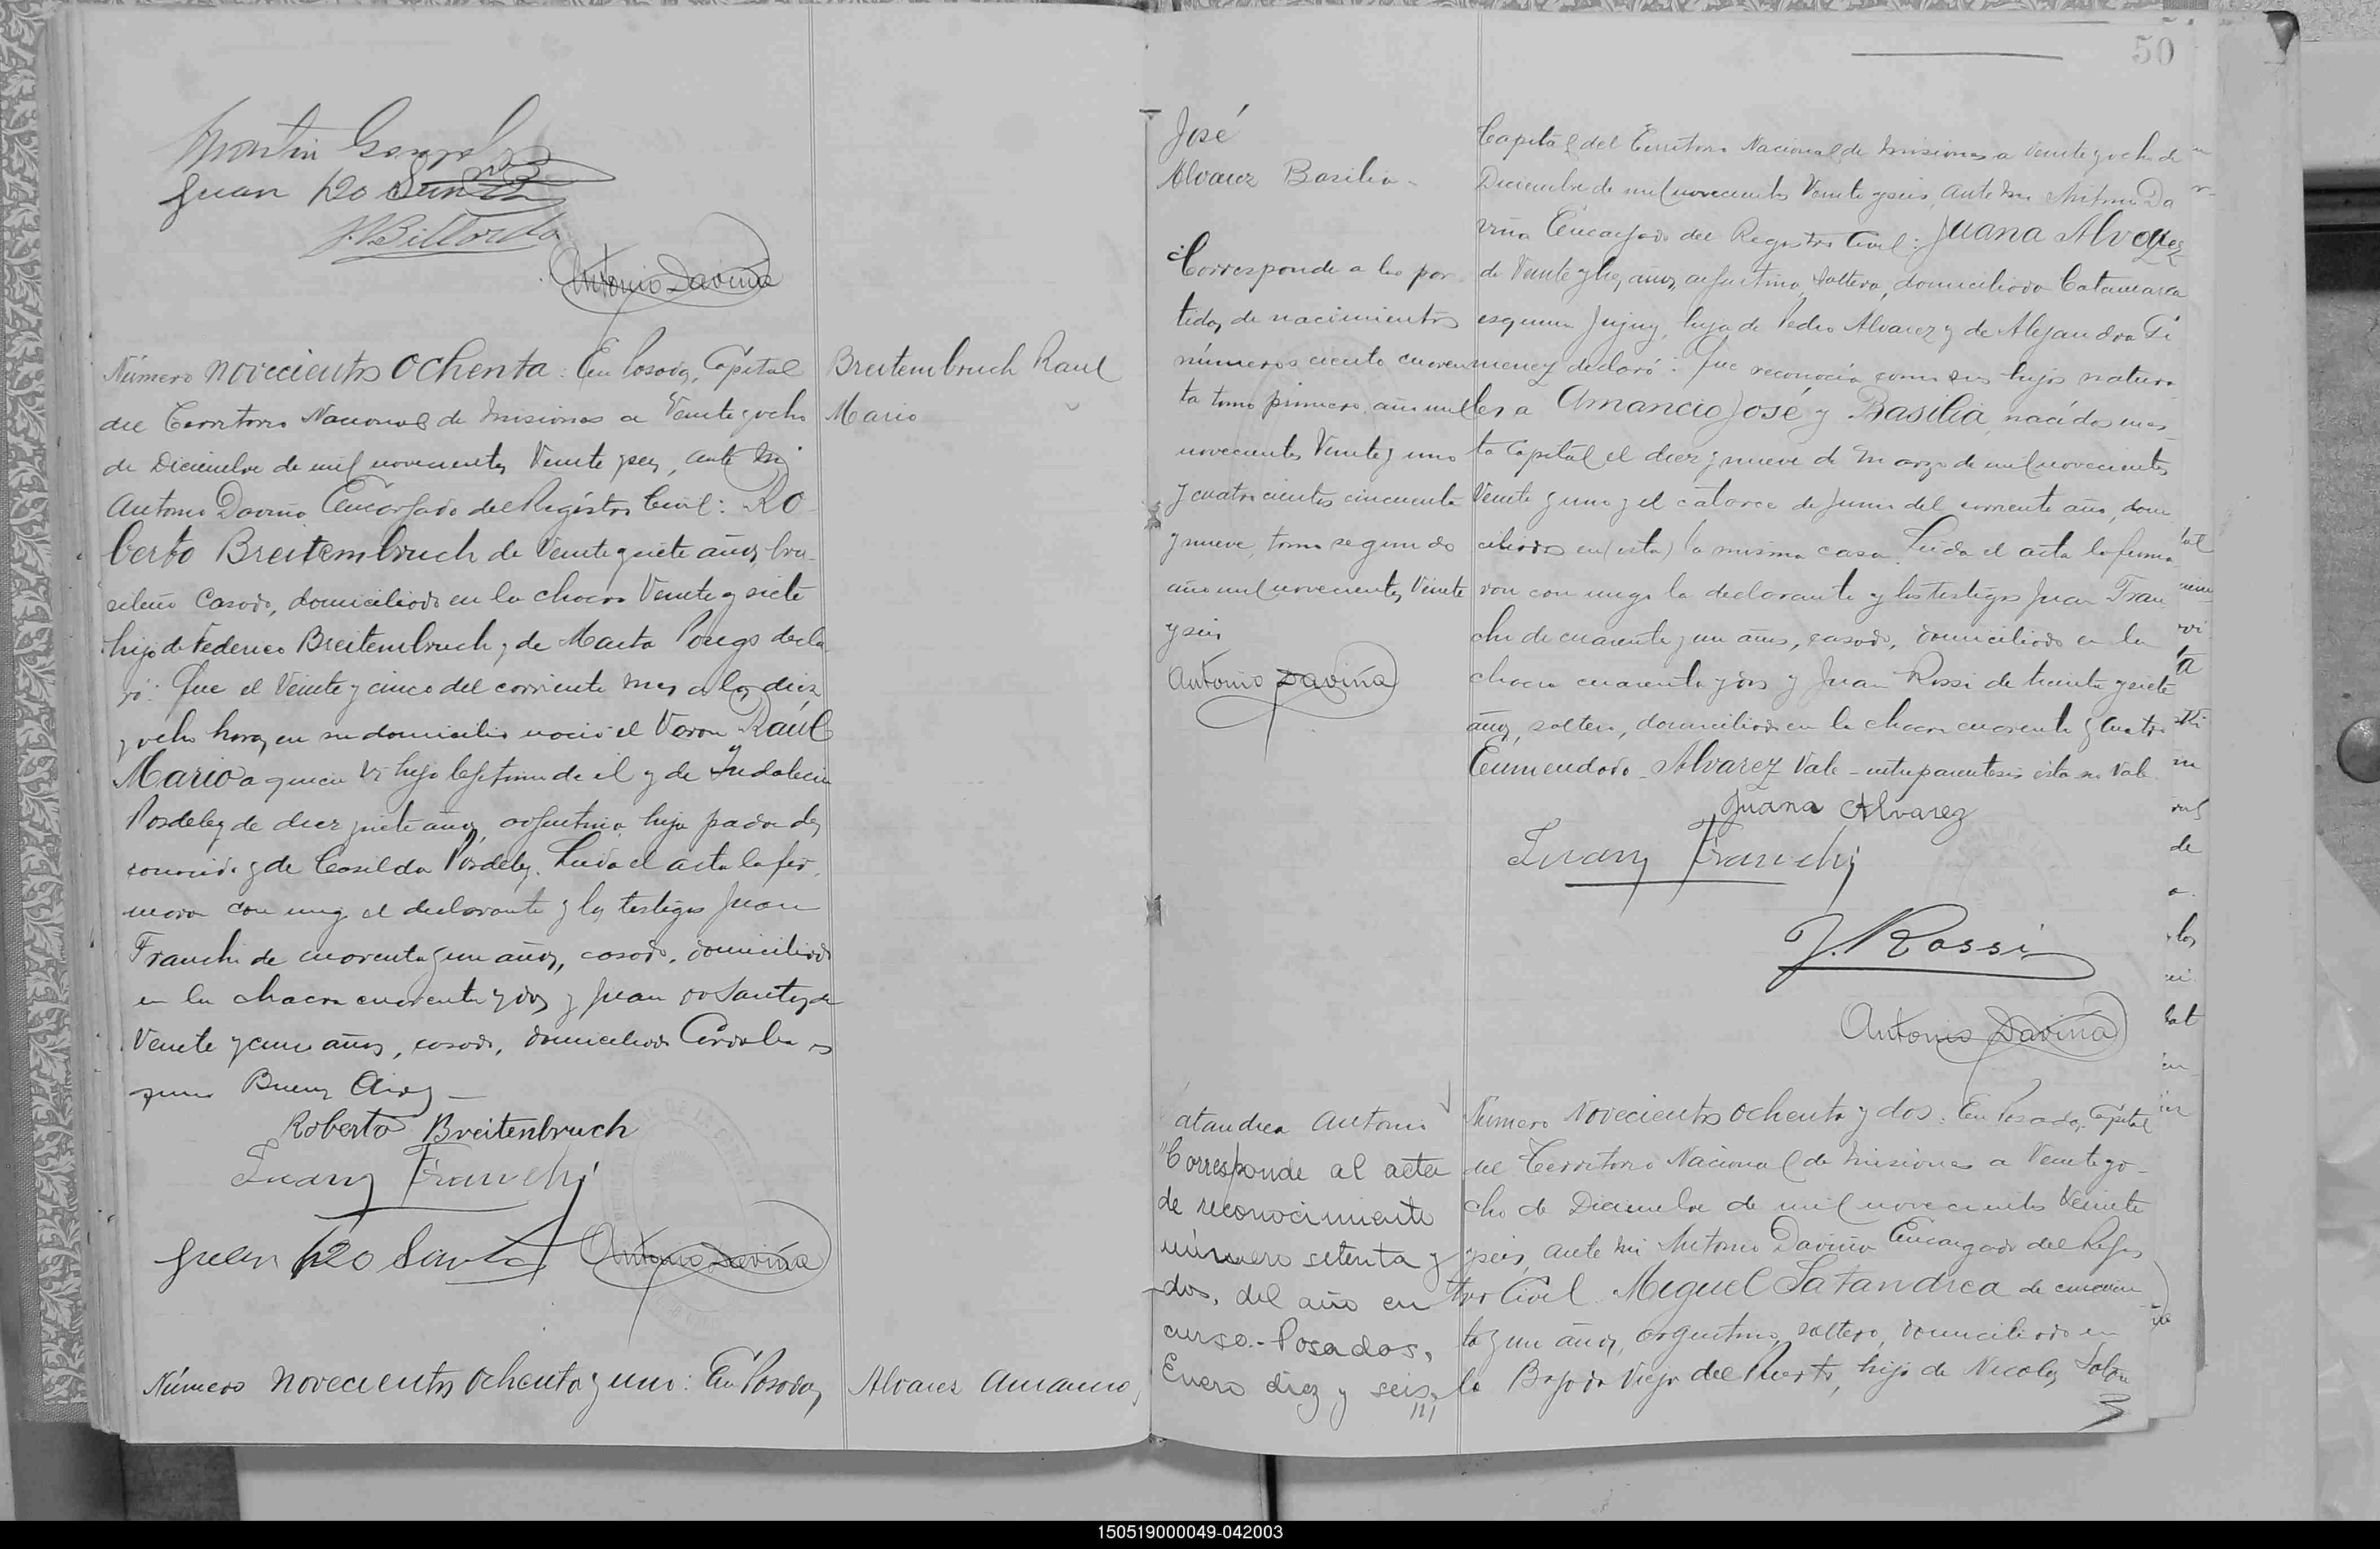 Martin Gonzalez
Juan do Santo
Antonio Daviña
Número novecientos ochenta: En Posadas, Capital
del Territorio Nacional de Misiones a Veinte y ocho
de Diciembre de mil novecientos Veinte y seis, ante mi
Antonio Daviña Encargado del Registro Civil: Ro
berto Breitembruch de Veinte y siete años, bra-
sileño Casado, domiciliado en la chacra Veinte y siete
hijo de Federico Breitembruch y de Marta decla
ró: Que el Veinte y cinco del corriente mes a las diez
y ocho horas, en su domicilio nació el Varon Raúl
Mario a quien hijo lejitimo de él y de Indalecia
de diez y siete años, argentina, hija padre des
conocido y de Casilda. Leida el acta la fir-
maron con migo el declarante y los testigos Juan
Franchi de cuarenta y un años, casado, domiciliado
en la chacra cuarenta y dos y Juan do Santos de
Veinte y cinco años, casado, domiciliado Córdoba es
quina Buenos Aires
Roberto Breitenbruch
Juan Franchi
Juan do Santo
Antonio Daviña
Número novecientos ochenta y uno: En Posadas,
Breitembruch Raul
Mario
Alvarez Amancio,
50
José
Alvarez Basilia-
Corresponde a las par
tidas de nacimientos
números ciento cuaren
ta tomo primero, año mil
novecientos Veinte y uno
y cuatrocientos cincuenta
y nueve, tomo segundo
año mil novecientos Veinte
y seis
Antonio Daviña
Capital del Territorio Nacional de Misiones a Veinte y ocho de
Diciembre de mil novecientos Veinte y seis, ante mi Antonio Da
viña Encargado del Registro Civil: Juana Alvarez
de Veinte y tres años, argentina, soltera, domiciliada Catamarca
esquina Jujuy, hija de Pedro Alvarez y de Alejandra Gi
menez declaró: Que reconocía como sus hijos natura
les a Amancio José y Basilia, nacidos en es
ta Capital el diez y nueve de Marzo de mil novecientos
Veinte y uno y el catorce de Junio del corriente año, domi
ciliados en (esta) la misma casa. Leida el acta la firma
ron con migo la declarante y los testigos Juan Fran
chi de cuarenta y un años, casado, domiciliado en la
chacra cuarenta y dos y Juan Rossi de treinta y siete
años, soltero, domiciliado en la chacra cuarenta y cuatro
Enmendado-Alvarez Vale-entreparentesis esta no Vale
Juana Alvarez
Juan Franchi
J. Rossi
Antonio Daviña
atandrea Antonio
Corresponde al acta
de reconocimiento
número setenta y
dos, del año en
curso.- Posadas,
Enero diez y seis
Número Novecientos ochenta y dos: En Posadas, Capital
del Territorio Nacional de Misiones a Veinte y o-
cho de Diciembre de mil novecientos Veinte
y seis, ante mi Antonio Daviña Encargado del Regis
tro Civil Miguel Satandrea de cuaren
ta y un años, argentino, soltero, domiciliado en
la Bajada Vieja del Puerto, hijo de Nicolas
150519000049-042003